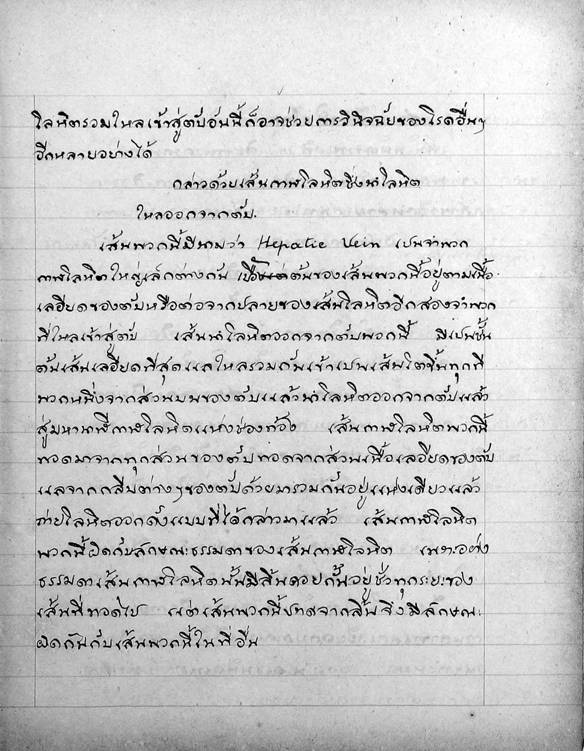 โลหิตรวมใหลเข้าสู่ตับอันนี้ก็อาจช่วยการวินิจฉัยของโรคอื่นๆ
อีกหลายอย่างได้
กล่าวด้วยเส้นกาฬโลหิตซึ่งนำโลหิต
ใหลออกจากตับ.
เส้นพวกนี้มีนามว่า Hepatic Vein เปนจำพวก
กาฬโลหิตใหญ่เล็กต่างกัน เบื้องต้นของเส้นพวกนี้อยู่ตามเนื้อ
เลอียดของตับหรือต่อจากปลายของเส้นโลหิตอีกสองจำพวก
ที่ใหลเข้าสู่ตับ เส้นนำโลหิตออกจากตับพวกนี้ มีเปนชั้น
ต้นเส้นเลอียดที่สุดแลใหลรวมกันเข้าเปนเส้นโตขึ้นทุกที
พวกหนึ่งจากส่วนบนของตับแล้วนำโลหิตออกจากตับแล้ว
สู่มหานทีกาฬโลหิตแห่งช่องท้อง เส้นกาฬโลหิตพวกนี้
ทอดมาจากทุกส่วนของตับทอดจากส่วนเนื้อเลอียดของตับ
แลจากกลีบต่างๆของตับด้วยมารวมกันอยู่แห่งเดียวแล้ว
ถ่ายโลหิตออกดั่งแบบที่ได้กล่าวมาแล้ว เส้นกาฬโลหิต
พวกนี้ผิดกับลักษณะธรรมดาของเส้นกาฬโลหิต เพราะอย่าง
ธรรมดาเส้นกาฬโลหิตนั้นมีลิ้นคอยกั้นอยู่ชั่วทุกระยะของ
เส้นที่ทอดไป แต่เส้นพวกนี้ปราศจากลิ้นจึ่งมีลักษณะ
ผิดกันกับเส้นพวกนี้ในที่อื่น